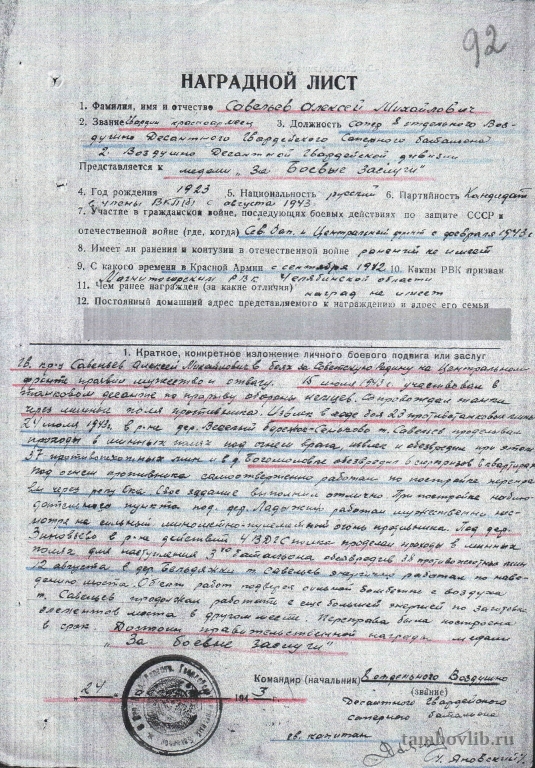 92
НАГРАДНОЙ ЛИСТ
1. Фамилия, имя и отчество Савельев Алексей Михайлович
2. Звание Гвардии красноармеец 3. Должность сапер 8 отдельного Воз-
душно Десантного Гвардейского Саперного батальона
2. Воздушно Десантной Гвардейской дивизии
Представляется к медали „За Боевые Заслуги"
4. Год рождения 1923 5. Национальность русский 6. Партийность Кандидат
в члены ВКП(б) с августа 1943
7. Участие в гражданской войне, последующих боевых действиях по защите СССР и
отечественной войне (где, когда) Сев. Зап. и Центральный фронт с февраля 1943 г
8. Имеет ли ранения и контузии в отечественной войне ранений не имеет
9. С какого времени в Красной Армии с сентября 1942 10. Каким РВК призван
Магнитогорским РВК Челябинской области
11. Чем ранее награжден (за какие отличия) наград не имеет
12. Постоянный домашний адрес представляемого к награждению и адрес его семьи
1. Краткое, конкретное изложение личного боевого подвига или заслуг
Гв. кр-ц Савельев Алексей Михайлович в боях за Советскую Родину на Центральном
фронте проявил мужество и отвагу. 15 июля 1943 г. участвовал в
танковом десанте по прорыву обороны немцев. Сопровождал танки
через минные поля противника. Извлек в ходе боя 23 противотанковых мины
24 июля 1943 г в р-не дер. Веселый т. Савельев проделывал
проходы в минных полях под огнем врага извлек и обезвредил при этом
37 противопехотных мин и в д. обезвредил сюрпризов в квартирах
Под огнем противника самоотверженно работал по постройке переправ
через реку Ока. Свое задание выполнил отлично. При постройке наблю-
дательного пункта под дер. работал мужественно нес-
мотря на сильный минометно-пулеметный огонь противника. Под дер.
Зиновьево в р-не действий 4 ВДГСтика проделал проходы в минных
полях для наступления 3го батальона обезвредив 38 противопехотных мин
12 августа в дер. Бельдяжки т. Савельев энергично работал по наво-
дению моста. Объект работ подвергся сильной бомбежке с воздуха
т. Савельев продолжал работать с еще большей энергией по заготовке
элементов моста в другом месте. Переправа была построена
в срок. Достоин правительственной награды медали
„За боевые заслуги"
Командир (начальник) 8 отдельного Воздушно
(звание)
Десантного Гвардейского
саперного батальона
гв. капитан
/Яновский/
„24" 1943 г.
tambovlib.ru